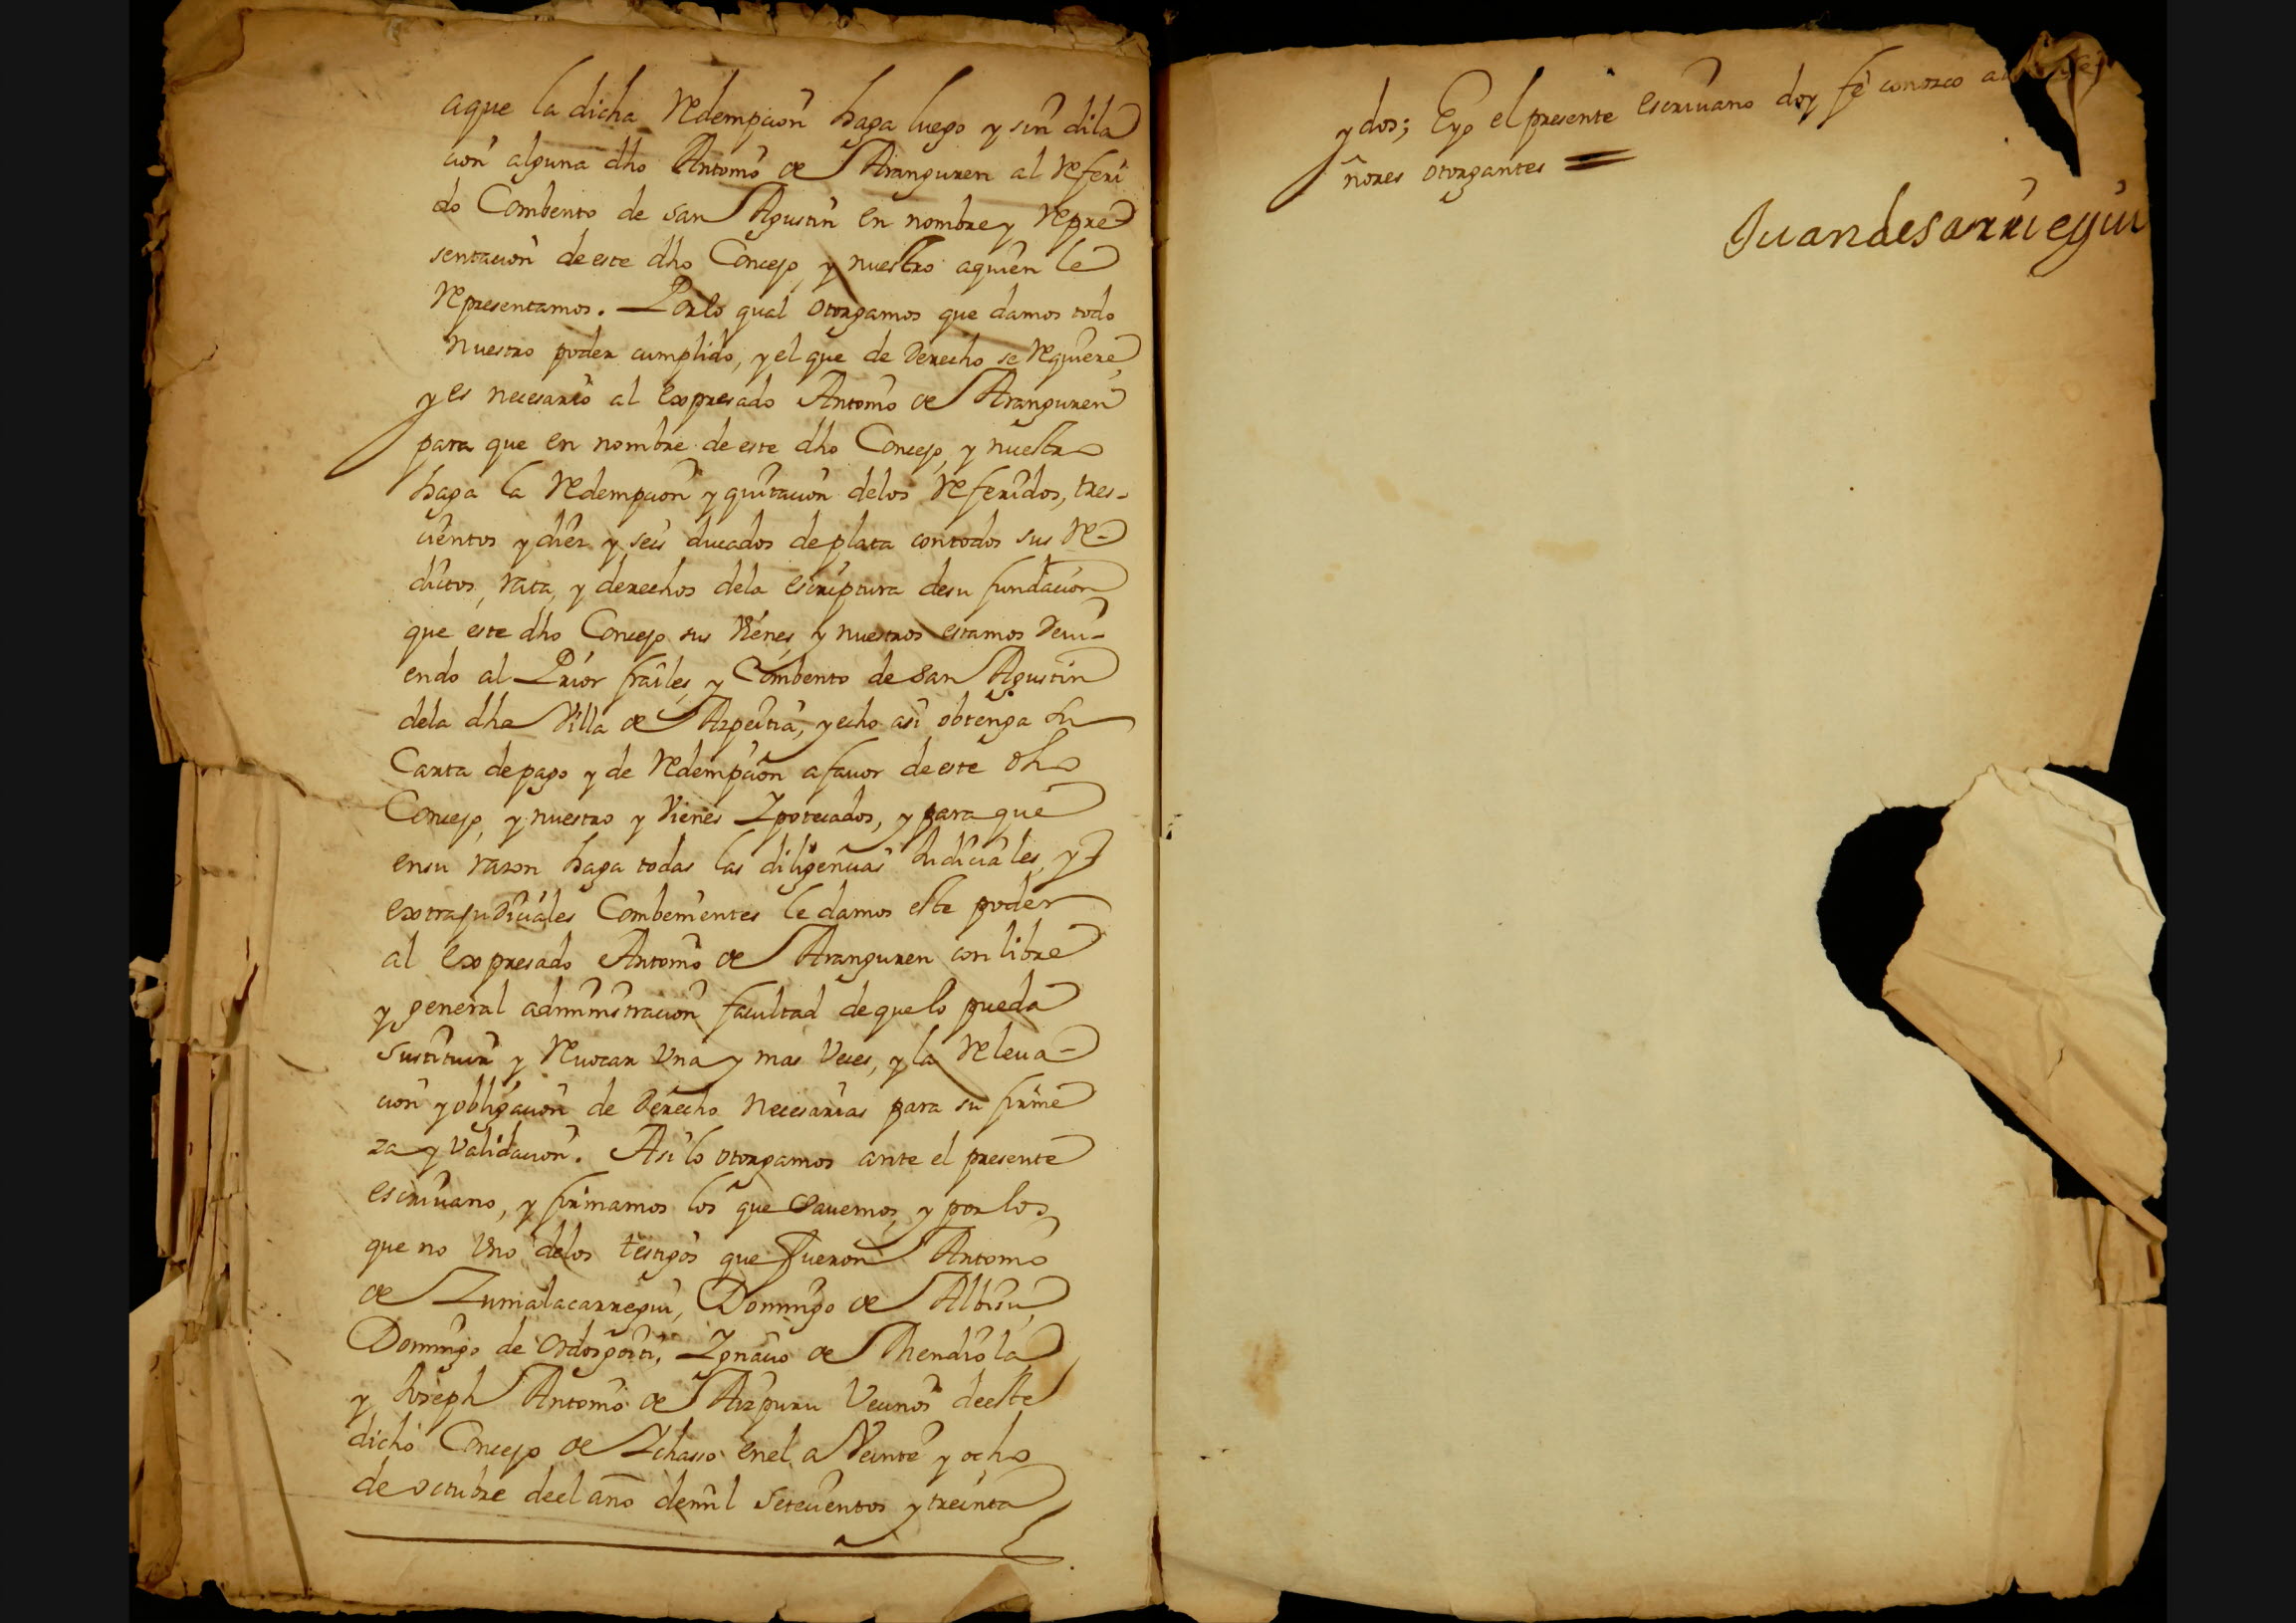 aque la dicha Redempcion haga luego y sin dila
cion alguna dho Antonio de Aranguren al Referi
do Combento de San Agustin en nombre y Repre-
sentacion de este dho Concejo, y nuestro aquien le
Representamos. Por lo qual otorgamos que damos todo
nuestro poder cumplido, y el que de Derecho se Requiere
y es necesario al expresado Antonio de Aranguren
para que en nombre de este dho Concejo, y nuestro
haga la Redempcion y quitacion delos Referidos, tres-
cientos y diez y seis ducados de plata contodos sus Re-
ditos, rata, y derechos dela escriptura desu fundacion
que este dho Concejo sus Vienes, y nuestros estamos Devi-
endo al Prior frailes, y Combento de San Agustin
dela dha Villa de Azpeitia, y echo asi obtenga su
Carta de pago y de Redempcion afavor de este dho
Concejo, y nuestro y Vienes Ypotecados, y para que
ensu razon haga todas las diligencias Judiciales, y
extrajudiciales Combenientes le damos este poder
al expresado Antonio de Aranguren con libre
y general administracion facultad de que lo pueda
sustituir y Revocar Una y mas Veces, y la Releva-
cion y obligacion de Derecho Necesarias para su firme
za y Validacion. Asi lo otorgamos ante el presente
escrivano, y firmamos los que Savemos, y por los
que no Uno delos testigos que fueron Antonio
de Zumalacarregui, Domingo de Albisu,
Domingo de Ordosgoiti, Ignacio de Mendiola
y Joseph Antonio de Aizpuru Vecinos deeste
dicho Concejo de Ychasso enel a Veinte y ocho
de octubre deel año demil Setecientos y treinta
y dos; E yo el presente escrivano doy fe conozco
ñores otorgantes =
Juan de Sarriegui